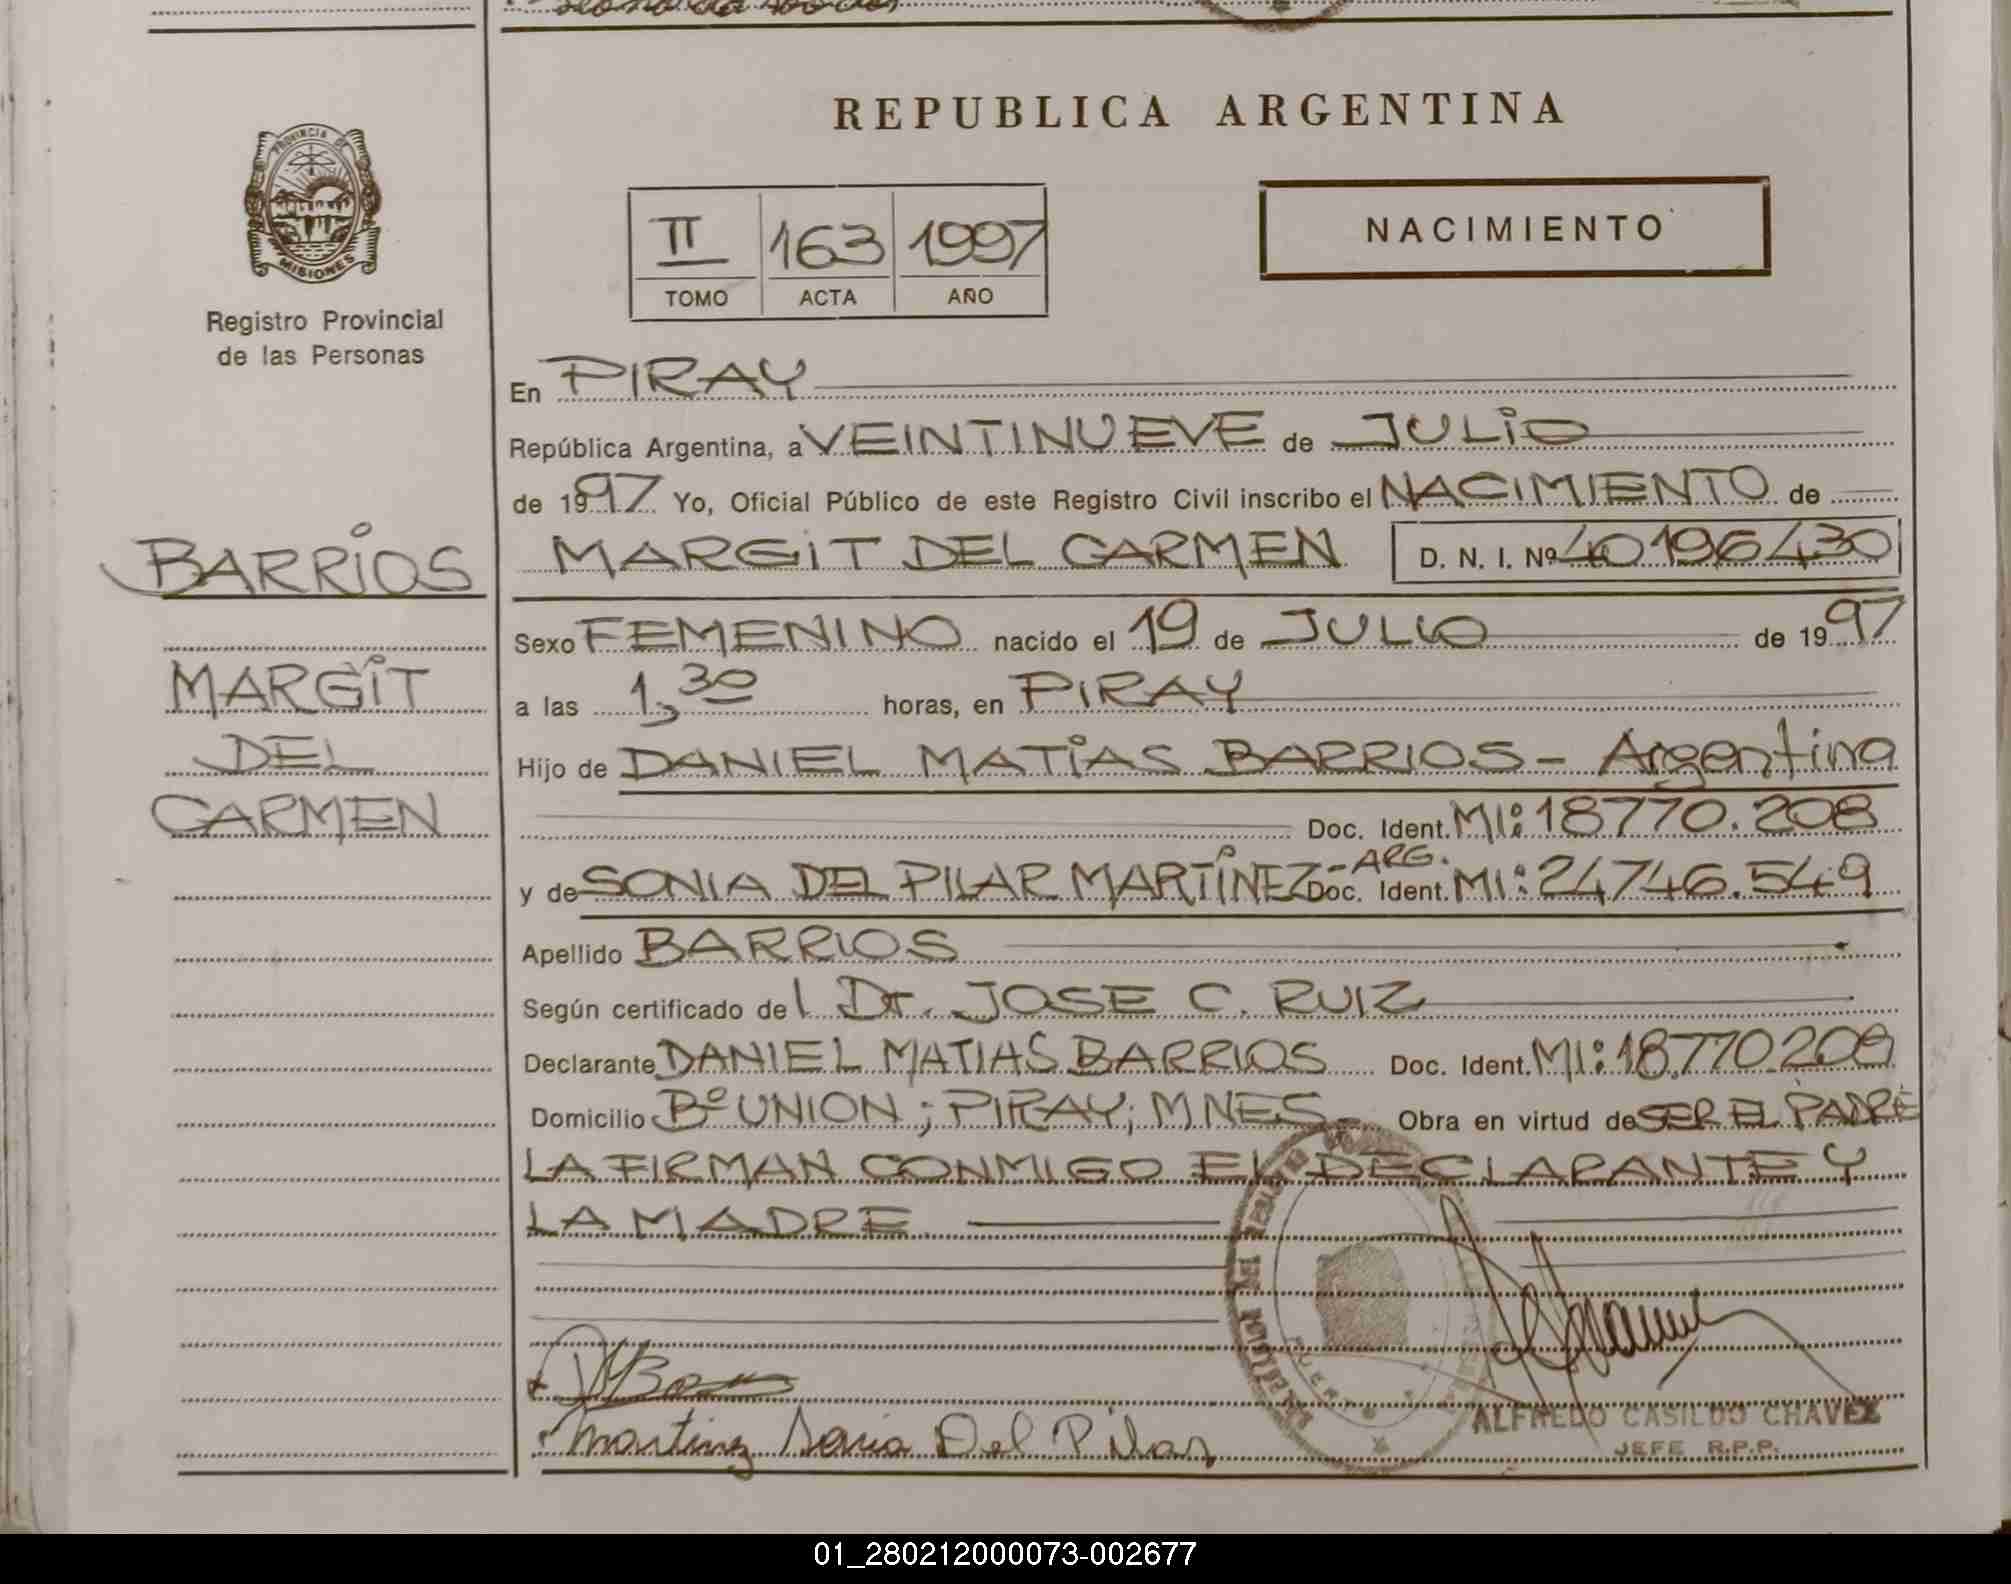 REPUBLICA ARGENTINA
PROVINCIA DE
MISIONES
Registro Provincial
de las Personas
II 163 1997
TOMO ACTA AÑO
NACIMIENTO
BARRIOS
MARGIT
DEL
CARMEN
En PIRAY
República Argentina, a VEINTINUEVE de JULIO
de 1997 Yo, Oficial Público de este Registro Civil inscribo el NACIMIENTO de
MARGIT DEL CARMEN D. N. I. Nº 40196430
Sexo FEMENINO nacido el 19 de JULIO de 1997
a las 1,30 horas, en PIRAY
Hijo de DANIEL MATIAS BARRIOS - Argentina
Doc. Ident. MI: 18770.208
y de SONIA DEL PILAR MARTÍNEZ - ARG. Doc. Ident. MI: 24746.549
Apellido BARRIOS
Según certificado del Dr. JOSE C. RUIZ
Declarante DANIEL MATIAS BARRIOS Doc. Ident. MI: 18.770.208
Domicilio Bº UNION; PIRAY; MNES - Obra en virtud de SER EL PADRE
LA FIRMAN CONMIGO EL DECLARANTE Y
LA MADRE
Martinez Sonia Del Pilar
ALFREDO CASILDO CHAVEZ
JEFE R.P.P.
01_280212000073-002677